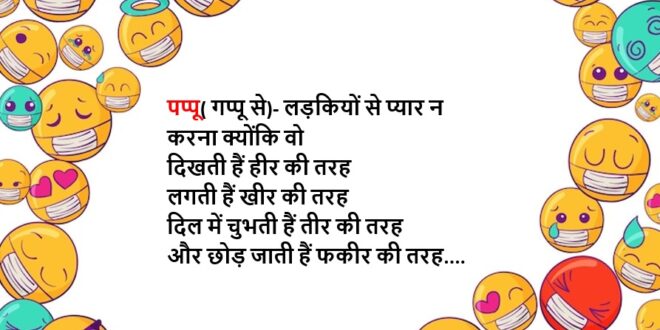 पप्पू( गप्पू से)- लड़कियों से प्यार न
करना क्योंकि वो
दिखती हैं हीर की तरह
लगती हैं खीर की तरह
दिल में चुभती हैं तीर की तरह
और छोड़ जाती हैं फकीर की तरह....